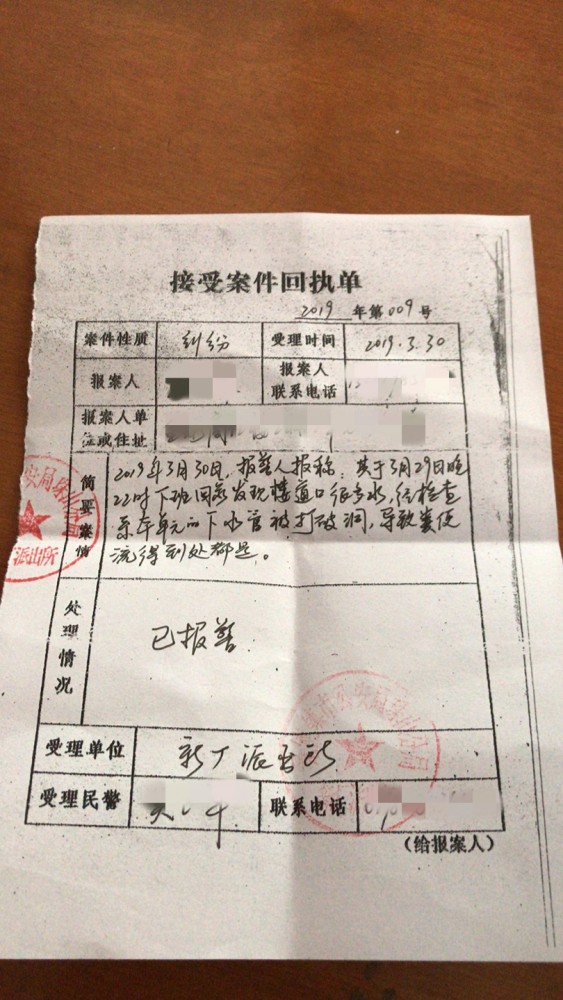 接受案件回执单
2019 年第 009 号
案件性质 纠纷 受理时间 2019.3.30
报案人 报案人
联系电话
报案人单
位或住址
简要案情
2019年3月30日,报警人报称,其于3月29日晚
22时下班回家发现楼道口很多水,经检查
系本单元的下水管被打破洞,导致粪便
流得到处都是。
处理情况
已报警
受理单位 新厂派出所
受理民警 联系电话
(给报案人)
公安局
派出所
市公安局